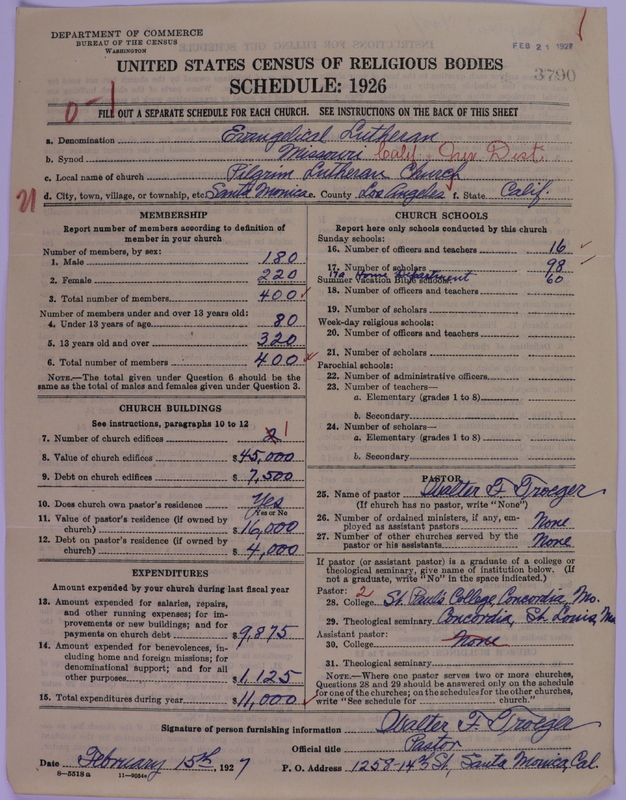 DEPARTMENT OF COMMERCE
BUREAU OF THE CENSUS
WASHINGTON
FEB 21 1927
3790
UNITED STATES CENSUS OF RELIGIOUS BODIES
SCHEDULE: 1926
0-1
FILL OUT A SEPARATE SCHEDULE FOR EACH CHURCH. SEE INSTRUCTIONS ON THE BACK OF THIS SHEET
a. Denomination Evangelical Lutheran
b. Synod Missouri Calif. Dist.
c. Local name of church Pilgrim Lutheran Church
21
d. City, town, village, or township, etc. Santa Monica e. County Los Angeles f. State Calif.
MEMBERSHIP
Report number of members according to definition of
member in your church
Number of members, by sex:
1. Male 180
2. Female 220
3. Total number of members 400
Number of members under and over 13 years old:
4. Under 13 years of age 80
5. 13 years old and over 320
6. Total number of members 400
NOTE.—The total given under Question 6 should be the
same as the total of males and females given under Question 3.
CHURCH BUILDINGS
See instructions, paragraphs 10 to 12
7. Number of church edifices 2 1
8. Value of church edifices $45,000
9. Debt on church edifices $7,500
10. Does church own pastor's residence Yes
Yes or No
11. Value of pastor's residence (if owned by
church) $16,000
12. Debt on pastor's residence (if owned by
church) $4,000
EXPENDITURES
Amount expended by your church during last fiscal year
13. Amount expended for salaries, repairs,
and other running expenses; for im-
provements or new buildings; and for
payments on church debt $9,875
14. Amount expended for benevolences, in-
cluding home and foreign missions; for
denominational support; and for all
other purposes $1,125
15. Total expenditures during year $11,000
CHURCH SCHOOLS
Report here only schools conducted by this church
Sunday schools:
16. Number of officers and teachers 16
17. Number of scholars 98
17a Home Department 60
Summer Vacation Bible schools:
18. Number of officers and teachers
19. Number of scholars
Week-day religious schools:
20. Number of officers and teachers
21. Number of scholars
Parochial schools:
22. Number of administrative officers
23. Number of teachers—
a. Elementary (grades 1 to 8)
b. Secondary
24. Number of scholars—
a. Elementary (grades 1 to 8)
b. Secondary
PASTOR
25. Name of pastor Walter F. Troeger
(If church has no pastor, write "None")
26. Number of ordained ministers, if any, em-
ployed as assistant pastors None
27. Number of other churches served by the
pastor or his assistants None
If pastor (or assistant pastor) is a graduate of a college or
theological seminary, give name of institution below. (If
not a graduate, write "No" in the space indicated.)
Pastor: 2
28. College St. Paul's College, Concordia, Mo.
29. Theological seminary Concordia, St. Louis, Mo
Assistant pastor:
30. College None
31. Theological seminary
NOTE.—Where one pastor serves two or more churches,
Questions 28 and 29 should be answered only on the schedule
for one of the churches; on the schedules for the other churches,
write "See schedule for church."
Signature of person furnishing information Walter F. Troeger
Official title Pastor
Date February 15th, 1927
P. O. Address 1258-14th St., Santa Monica, Cal.
8—5518a